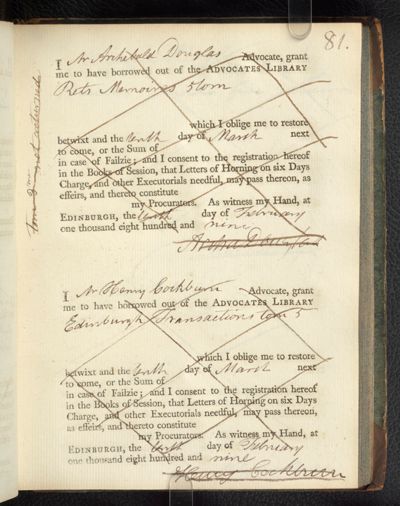 81.
I Mr Archibald Douglas Advocate, grant
me to have borrowed out of the ADVOCATES LIBRARY
Retz Memoires 5 tom
which I oblige me to restore
betwixt and the tenth day of March next
to come, or the Sum of
in case of Failzie; and I consent to the registration hereof
in the Books of Session, that Letters of Horning on six Days
Charge, and other Executorials needful, may pass thereon, as
effeirs, and thereto constitute
my Procurators. As witness my Hand, at
EDINBURGH, the tenth day of February
one thousand eight hundred and nine
Archd Douglas
I Mr Henry Cockburn Advocate, grant
me to have borrowed out of the ADVOCATES LIBRARY
Edinburgh Transactions tom 5
which I oblige me to restore
betwixt and the tenth day of March next
to come, or the Sum of
in case of Failzie; and I consent to the registration hereof
in the Books of Session, that Letters of Horning on six Days
Charge, and other Executorials needful, may pass thereon,
as effeirs, and thereto constitute
my Procurators. As witness my Hand, at
EDINBURGH, the tenth day of February
one thousand eight hundred and nine
Henry Cockburn